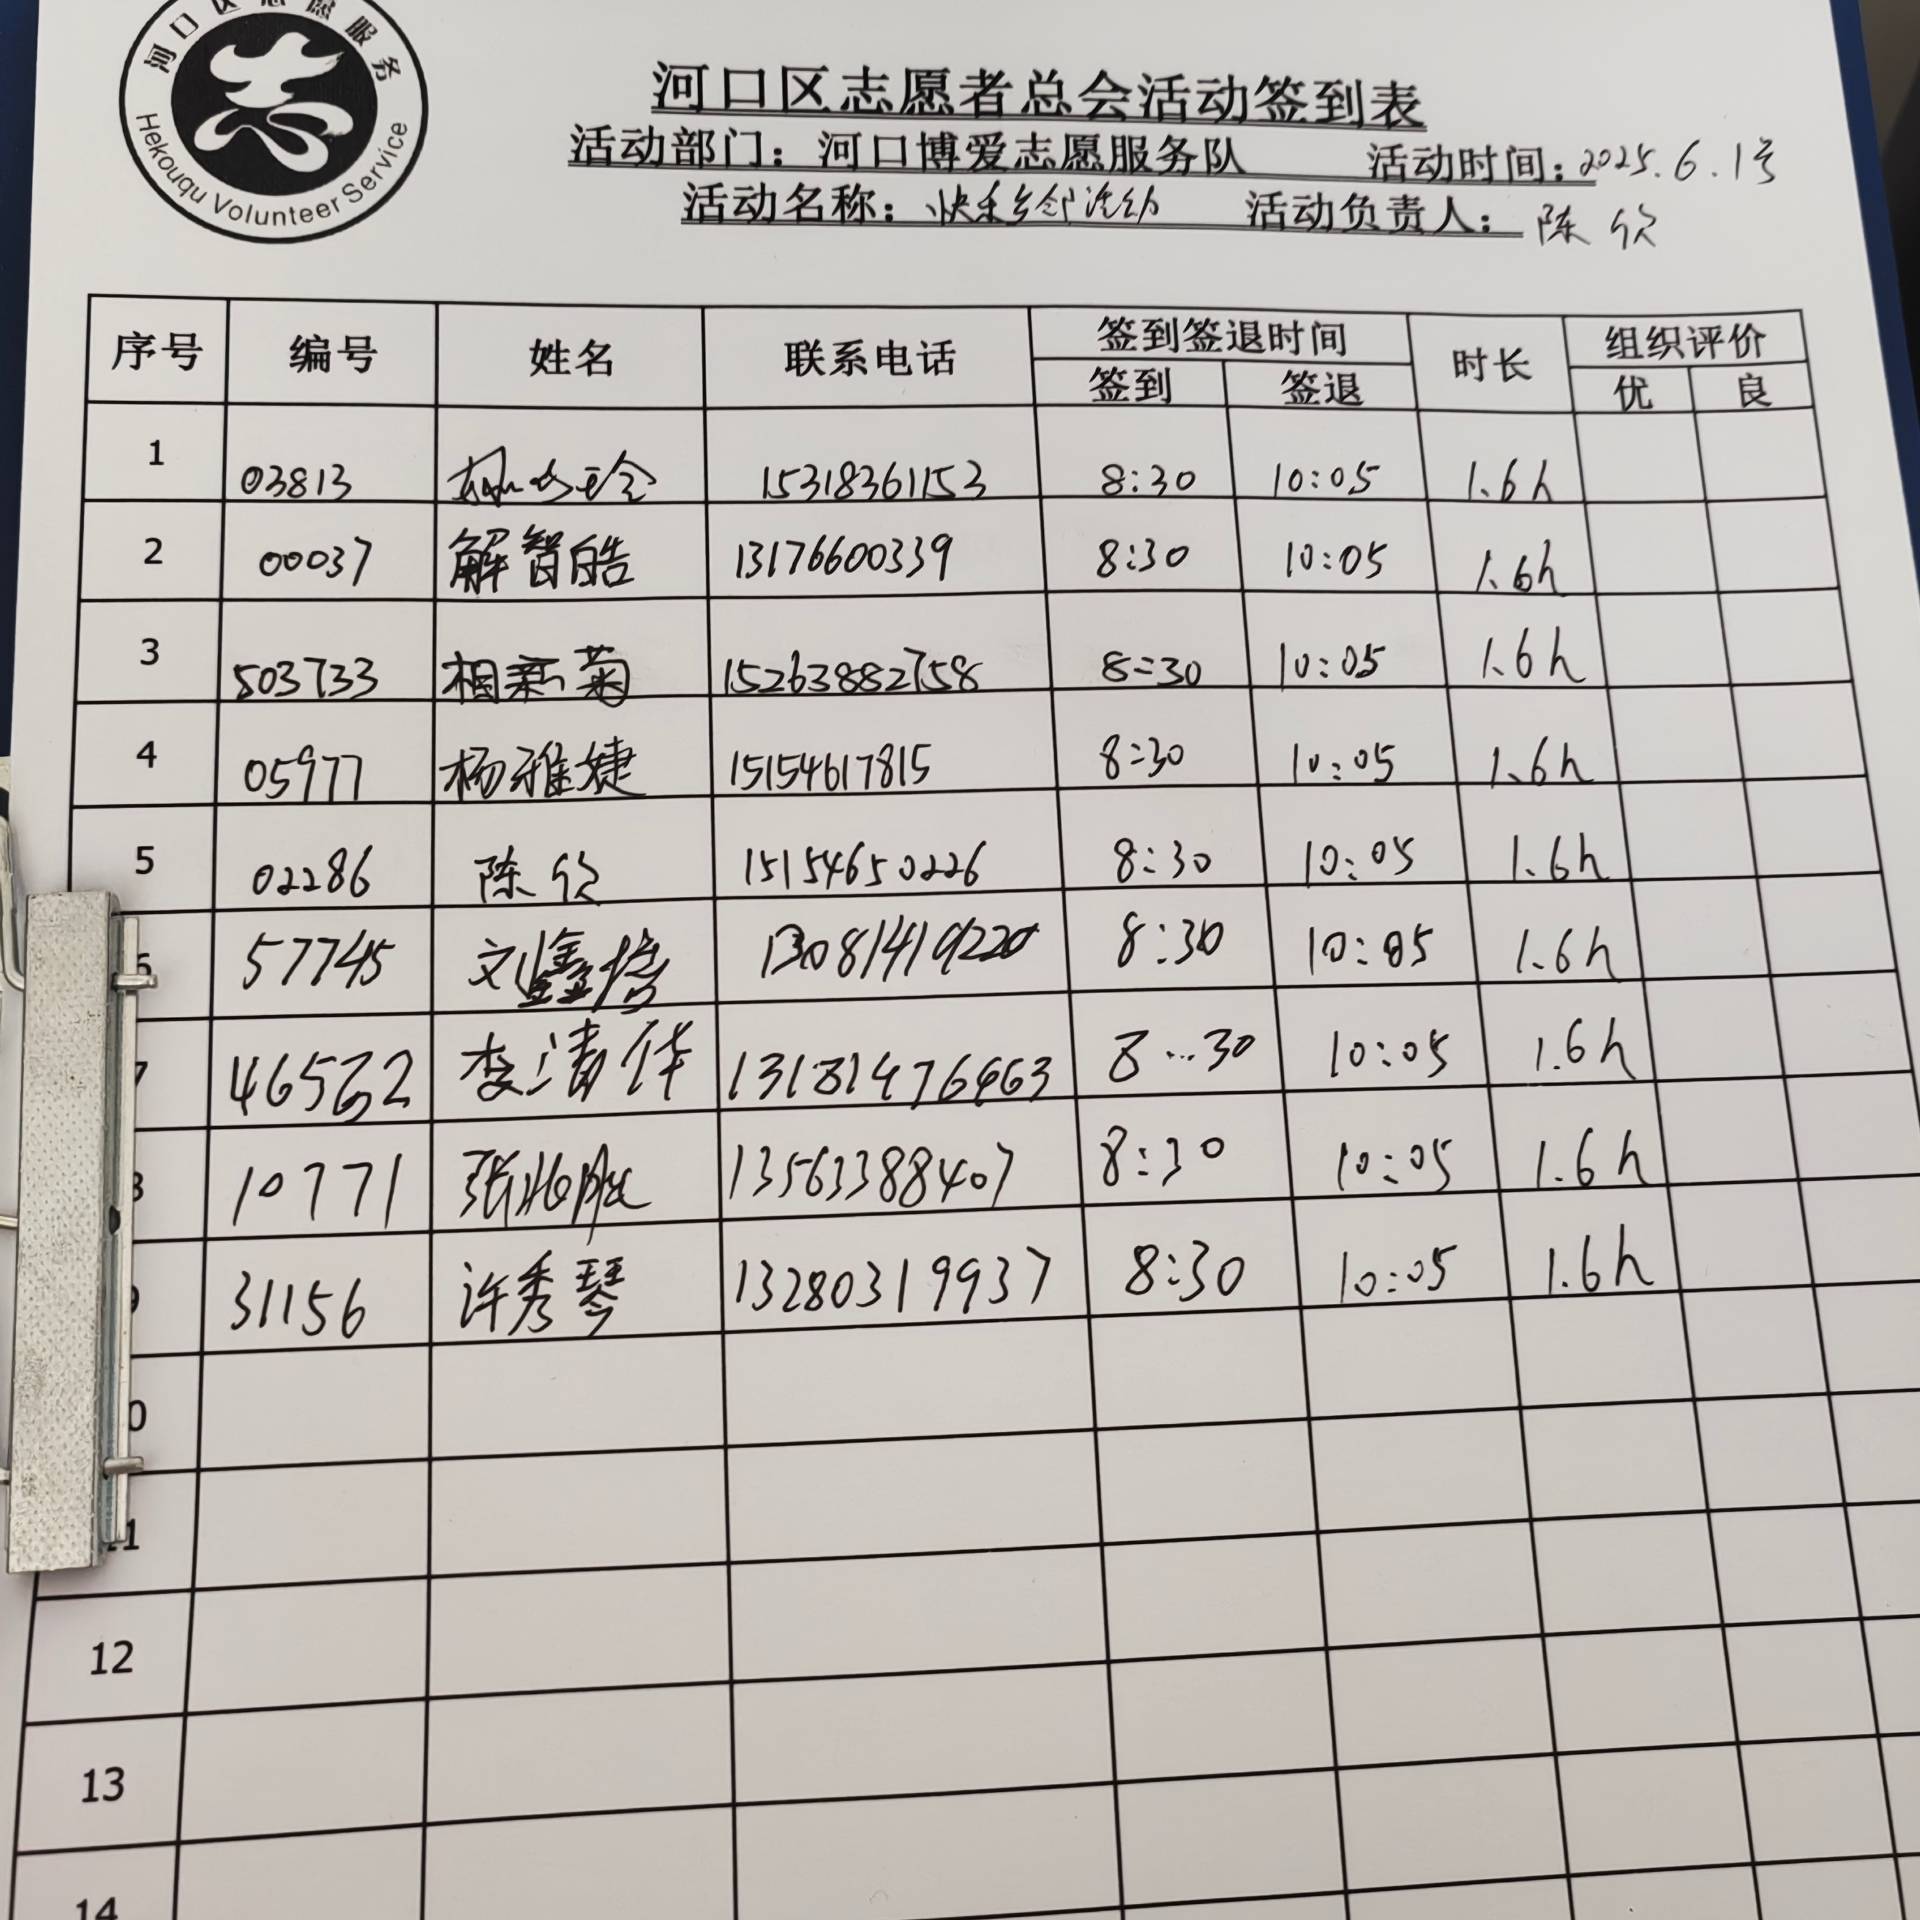 河口区志愿服务
Hekouqu Volunteer Service
河口区志愿者总会活动签到表
活动部门：河口博爱志愿服务队 活动时间：2025.6.1号
活动名称：快乐乡邻活动 活动负责人：陈欣
序号 编号 姓名 联系电话 签到签退时间 时长 组织评价
签到 签退 优 良
1 03813 15318361153 8:30 10:05 1.6h
2 00037 解智皓 13176600339 8:30 10:05 1.6h
3 503733 相新菊 15263882758 8:30 10:05 1.6h
4 05977 杨雅婕 15154617815 8:30 10:05 1.6h
5 02286 陈欣 15154650226 8:30 10:05 1.6h
6 57745 刘鑫培 13081419220 8:30 10:05 1.6h
7 李清华 8:30 10:05 1.6h
8 10771 13563388407 8:30 10:05 1.6h
9 31156 许秀琴 13280319937 8:30 10:05 1.6h
10
11
12
13
14